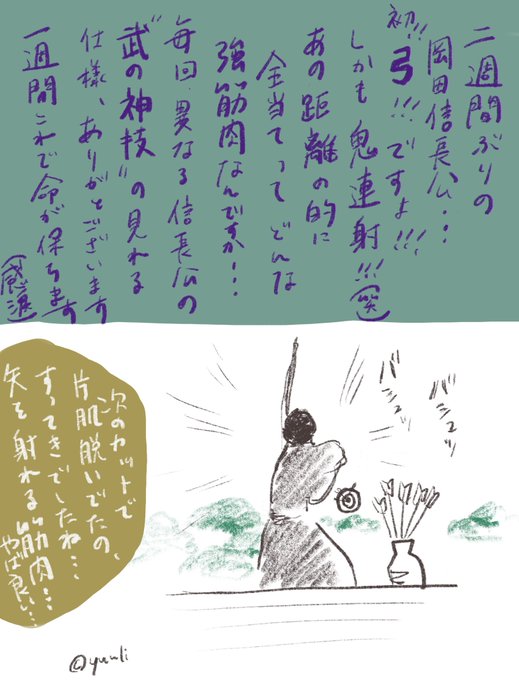 二週間ぶりの
岡田信長公…
初!!弓!!!ですよ!!!
しかも鬼連射!!!(笑)
あの距離の的に
全当てってどんな
強筋肉なんですか…
毎回、異なる信長公の
“武の神技”の見れる
仕様、ありがとございます
一週間これで命が保ちます
(感涙)
バシュッ
バシュッ
次のカットで
片肌脱いでたの、
すってきでしたね…
矢を射れる筋肉…
やば良い…
@yuuli